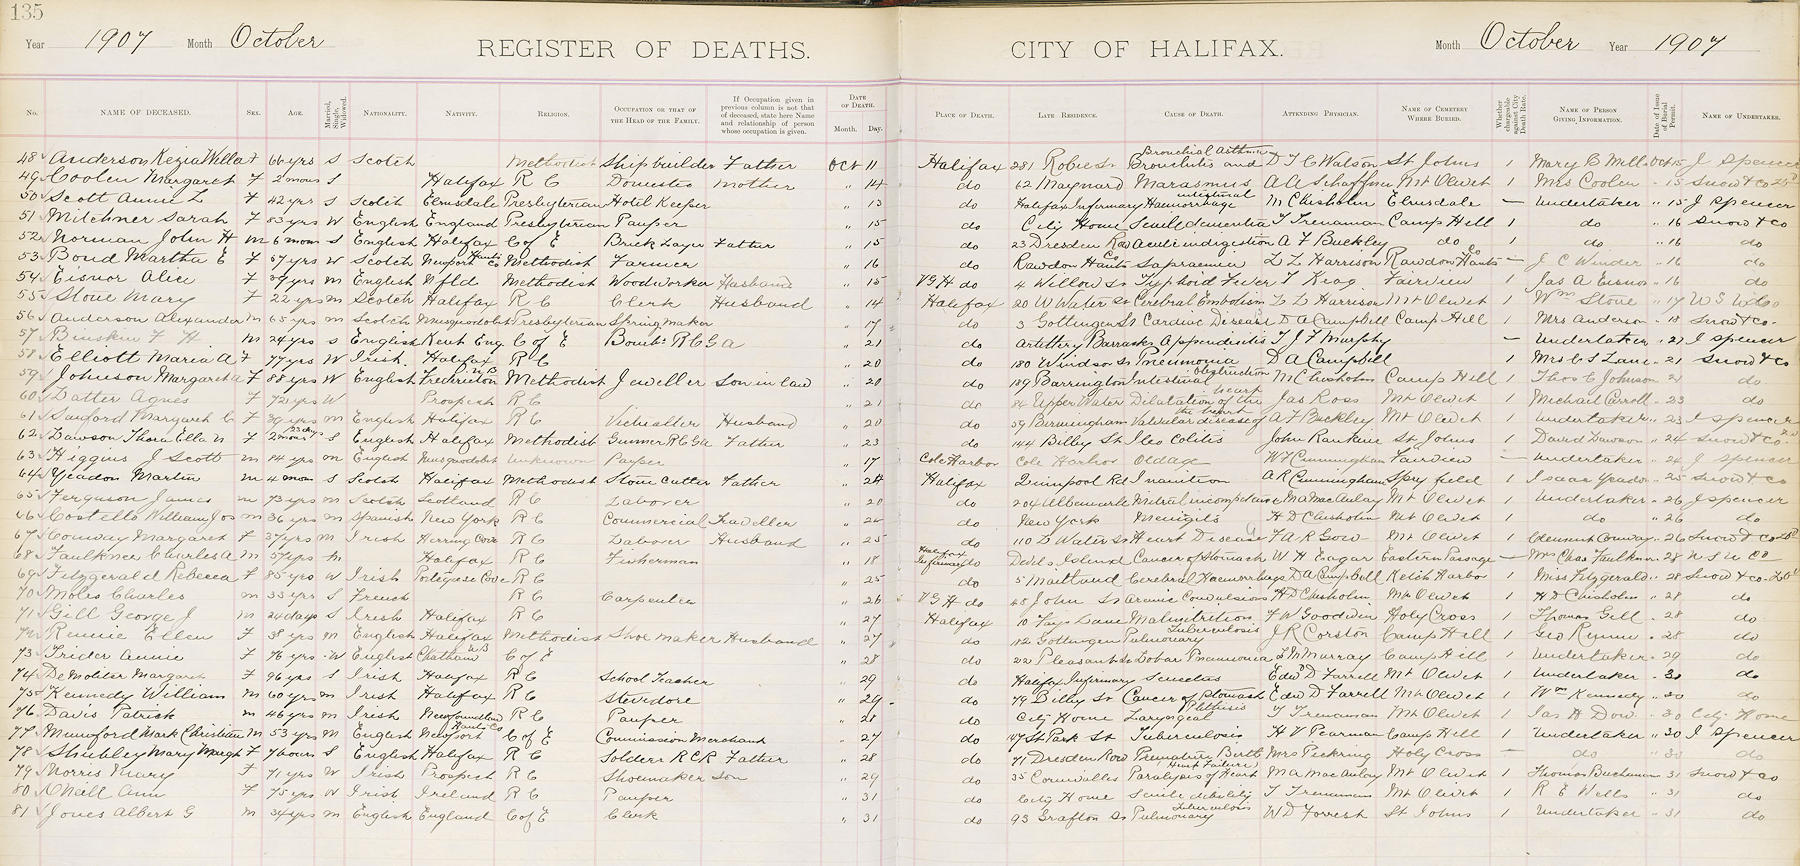 135
Year 1907 Month October REGISTER OF DEATHS. CITY OF HALIFAX. Month October Year 1907
No. NAME OF DECEASED. SEX. AGE. Married, Single, Widowed. NATIONALITY. NATIVITY. RELIGION. OCCUPATION OR THAT OF THE HEAD OF THE FAMILY. If Occupation given in previous column is not that of deceased, state here Name and relationship of person whose occupation is given. DATE OF DEATH. Month. Day. PLACE OF DEATH. LATE RESIDENCE. CAUSE OF DEATH. ATTENDING PHYSICIAN. NAME OF CEMETERY WHERE BURIED. Whether chargeable against City Death Rate. NAME OF PERSON GIVING INFORMATION. Date of Issue of Burial Permit. NAME OF UNDERTAKER.
48 Anderson Kezia Willa F 66 yrs S Scotch Methodist Shipbuilder Father Oct 11 Halifax 281 Robie St Bronchial Asthma Bronchitis and D T C Watson St Johns 1 Mary E Mills Oct 15 J Spencer
49 Coolen Margaret F 2 mons S Halifax R C Domestic Mother " 14 do 62 Maynard Marasmus A A Schaffner Mt Olivet 1 Mrs Coolen " 15 Snow & Co
50 Scott Annie L F 42 yrs S Scotch Elmsdale Presbyterian Hotel Keeper " 13 do Halifax Infirmary intestinal Haemorrhage M Chisholm Elmsdale — Undertaker " 15 J Spencer
51 Mitchner Sarah F 83 yrs W English England Presbyterian Pauper " 15 do City Home Senile dementia T Trenaman Camp Hill 1 do " 16 Snow & Co
52 Norman John H M 6 mons S English Halifax C of E Brick Layer Father " 15 do 23 Dresden Row Acute indigestion A F Buckley do 1 do " 16 do
53 Bond Martha E F 57 yrs W Scotch Newport Hants Co Methodist Farmer " 16 do Rawdon Hants Co Sapraemia L L Harrison Rawdon Hants Co — J C Winder " 16 do
54 Eisnor Alice F 39 yrs m English Nfld Methodist Woodworker Husband " 15 V G H do 4 Willow St Typhoid Fever T Keag Fairview 1 Jas A Eisnor " 16 do
55 Stone Mary F 22 yrs m Scotch Halifax R C Clerk Husband " 14 Halifax 20 W Water St Cerebral Embolism L L Harrison Mt Olivet 1 Wm Stone " 17 U S U Co
56 Anderson Alexander M 65 yrs m Scotch Musquodobit Presbyterian Spring maker " 17 do 3 Gottingen St Cardiac Disease D A Campbell Camp Hill 1 Mrs Anderson " 18 Snow & Co.
57 Binskin F H M 24 yrs S English Kent Eng. C of E Bombr R C G A " 21 do Artillery Barracks Appendicitis T J F Murphy — Undertaker " 21 J Spencer
58 Elliott Maria A F 77 yrs W Irish Halifax R C " 20 do 180 Windsor St Pneumonia D A Campbell 1 Mrs C S Lane " 21 Snow & Co
59 Johnson Margaret A F 88 yrs W English Fredricton N B Methodist Jeweller Son in law " 20 do 189 Barrington Intestinal obstruction M Chisholm Camp Hill 1 Thos C Johnson 21 do
60 Latter Agnes F 72 yrs W Prospect R C " 21 do 84 Upper Water Dilatation of the heart Jas Ross Mt Olivet 1 Michael Carroll " 23 do
61 Sanford Margaret C F 39 yrs m English Halifax R C Victualler Husband " 20 do 59 Birmingham Valvular disease of the heart A F Buckley Mt Olivet 1 Undertaker " 23 J Spencer
62 Dawson Thora Ella N F 2 mons 23 dys S English Halifax Methodist Gunner R C G A Father " 23 do 144 Bilby St Ileo Colitis John Rankine St Johns 1 David Dawson " 24 Snow & Co.
63 Higgins J Scott M 84 yrs m English Musquodobit Unknown Pauper " 17 Cole Harbor Cole Harbor Old age W F Cunningham Fairview — Undertaker " 24 J Spencer
64 Yeadon Martin M 4 mons S Scotch Halifax Methodist Stone Cutter Father " 24 Halifax Quinpool Rd Inanition A R Cunningham Spryfield 1 Isaac Yeadon " 25 Snow & Co
65 Ferguson James M 73 yrs m Scotch Scotland R C Laborer " 20 do 204 Albemarle Mitral incompetence M A MacAulay Mt Olivet 1 Undertaker " 26 J Spencer
66 Costello William Jos M 36 yrs m Spanish New York R C Commercial Traveller " 24 do New York Menigitis H D Chisholm Mt Olivet 1 do " 26 do
67 Conway Margaret F 37 yrs m Irish Herring Cove R C Laborer Husband " 25 do 110 L Water St Heart Disease F A R Gow Mt Olivet 1 Clement Conway " 26 Snow & Co
68 Faulkner Charles A M 57 yrs m Halifax R C Fisherman " 18 Halifax Infirmary do Devils Island Cancer of Stomach W H Eagar Eastern Passage — Mrs Chas Faulkner " 28 U S U Co
69 Fitzgerald Rebecca F 85 yrs W Irish Portugese Cove R C " 25 do 5 Maitland Cerebral Haemorrhage D A Campbell Ketch Harbor 1 Miss Fitzgerald " 28 Snow & Co.
70 Moles Charles M 33 yrs S French R C Carpenter " 26 V G H do 48 John St Uremic Convulsions H D Chisholm Mt Olivet 1 H D Chisholm " 28 do
71 Gill George J M 24 days S Irish Halifax R C " 27 Halifax 10 Kays Lane Malnutrition F W Goodwin Holy Cross 1 Thomas Gill " 28 do
72 Rennie Ellen F 38 yrs m English Halifax Methodist Shoe maker Husband " 27 do 112 Gottingen Pulmonary Tuberculosis J R Corston Camp Hill 1 Geo Rennie " 28 do
73 Trider Annie F 76 yrs W English Chatham N B C of E " 28 do 22 Pleasant St Lobar Pneumonia L M Murray Camp Hill 1 Undertaker " 29 do
74 DeMoliter Margaret F 96 yrs S Irish Halifax R C School Teacher " 29 do Halifax Infirmary Senectus Edw D Farrell Mt Olivet 1 Undertaker " 30 do
75 Kennedy William M 60 yrs m Irish Halifax R C Stevedore " 29 do 79 Bilby St Cancer of Stomach Edw D Farrell Mt Olivet 1 Wm Kennedy " 30 do
76 Davis Patrick M 46 yrs m Irish Newfoundland R C Pauper " 28 do City Home Laryngeal Phthisis T Trenaman Mt Olivet 1 Jas H Dow " 30 City Home
77 Mumford Mark Christian M 53 yrs m English Newport Hants Co C of E Commission Merchant " 27 do 47 St Park St Tuberculosis H V Pearman Camp Hill 1 Undertaker " 30 J Spencer
78 Shubley Mary Margt F 7 hours S English Halifax R C Soldier R C R Father " 28 do 71 Dresden Row Premature Birth Mrs Pickring Holy Cross — do " 30 do
79 Norris Mary F 71 yrs W Irish Prospect R C Shoemaker Son " 29 do 35 Cornwallis Paralysis of Heart Heart Failure M A MacAulay Mt Olivet 1 Thomas Buchanan " 31 Snow & Co
80 ONeill Ann F 75 yrs W Irish Ireland R C Pauper " 31 do City Home Senile debility T Trenaman Mt Olivet 1 R E Wells " 31 do
81 Jones Albert G M 34 yrs m English England C of E Clerk " 31 do 93 Grafton St Pulmonary Tuberculosis W D Forrest St Johns 1 Undertaker " 31 do